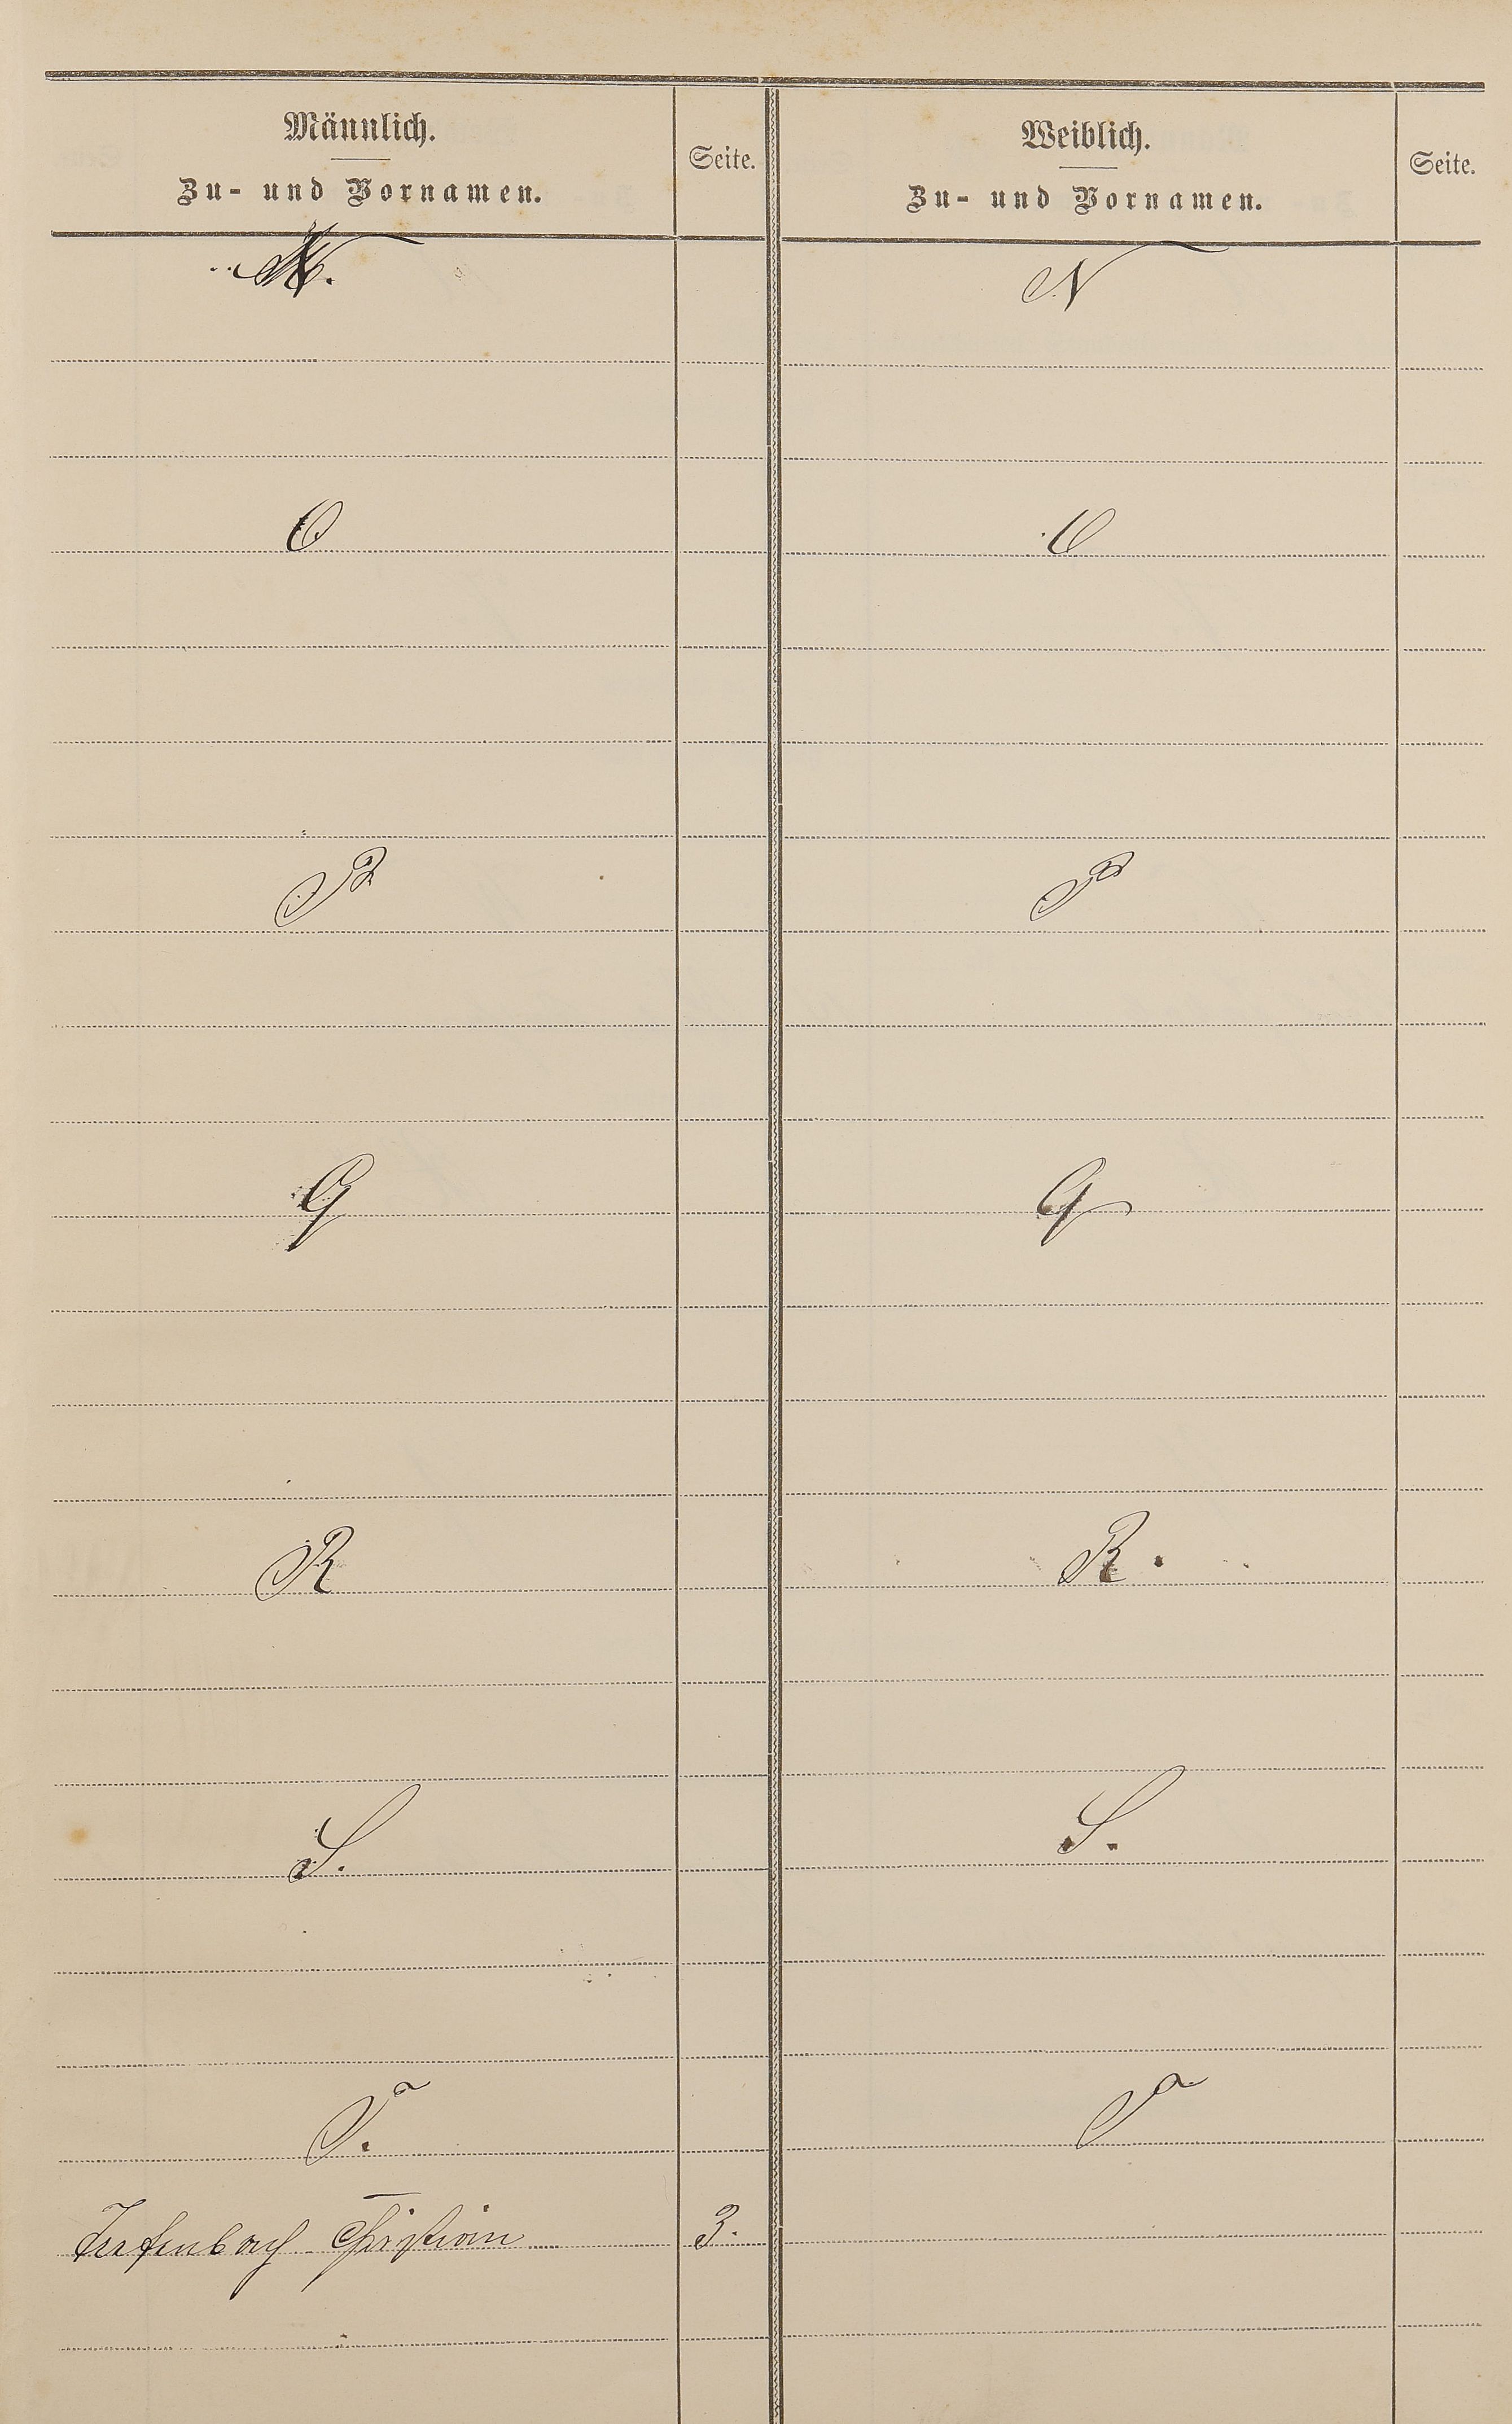 Männlich.
Zu- und Vornamen.
Seite.
Weiblich.
Zu- und Vornamen.
Seite.
N.
N
O
O
P
P
Q
Q
R
R.
S.
S.
T.
T
Christian 3.